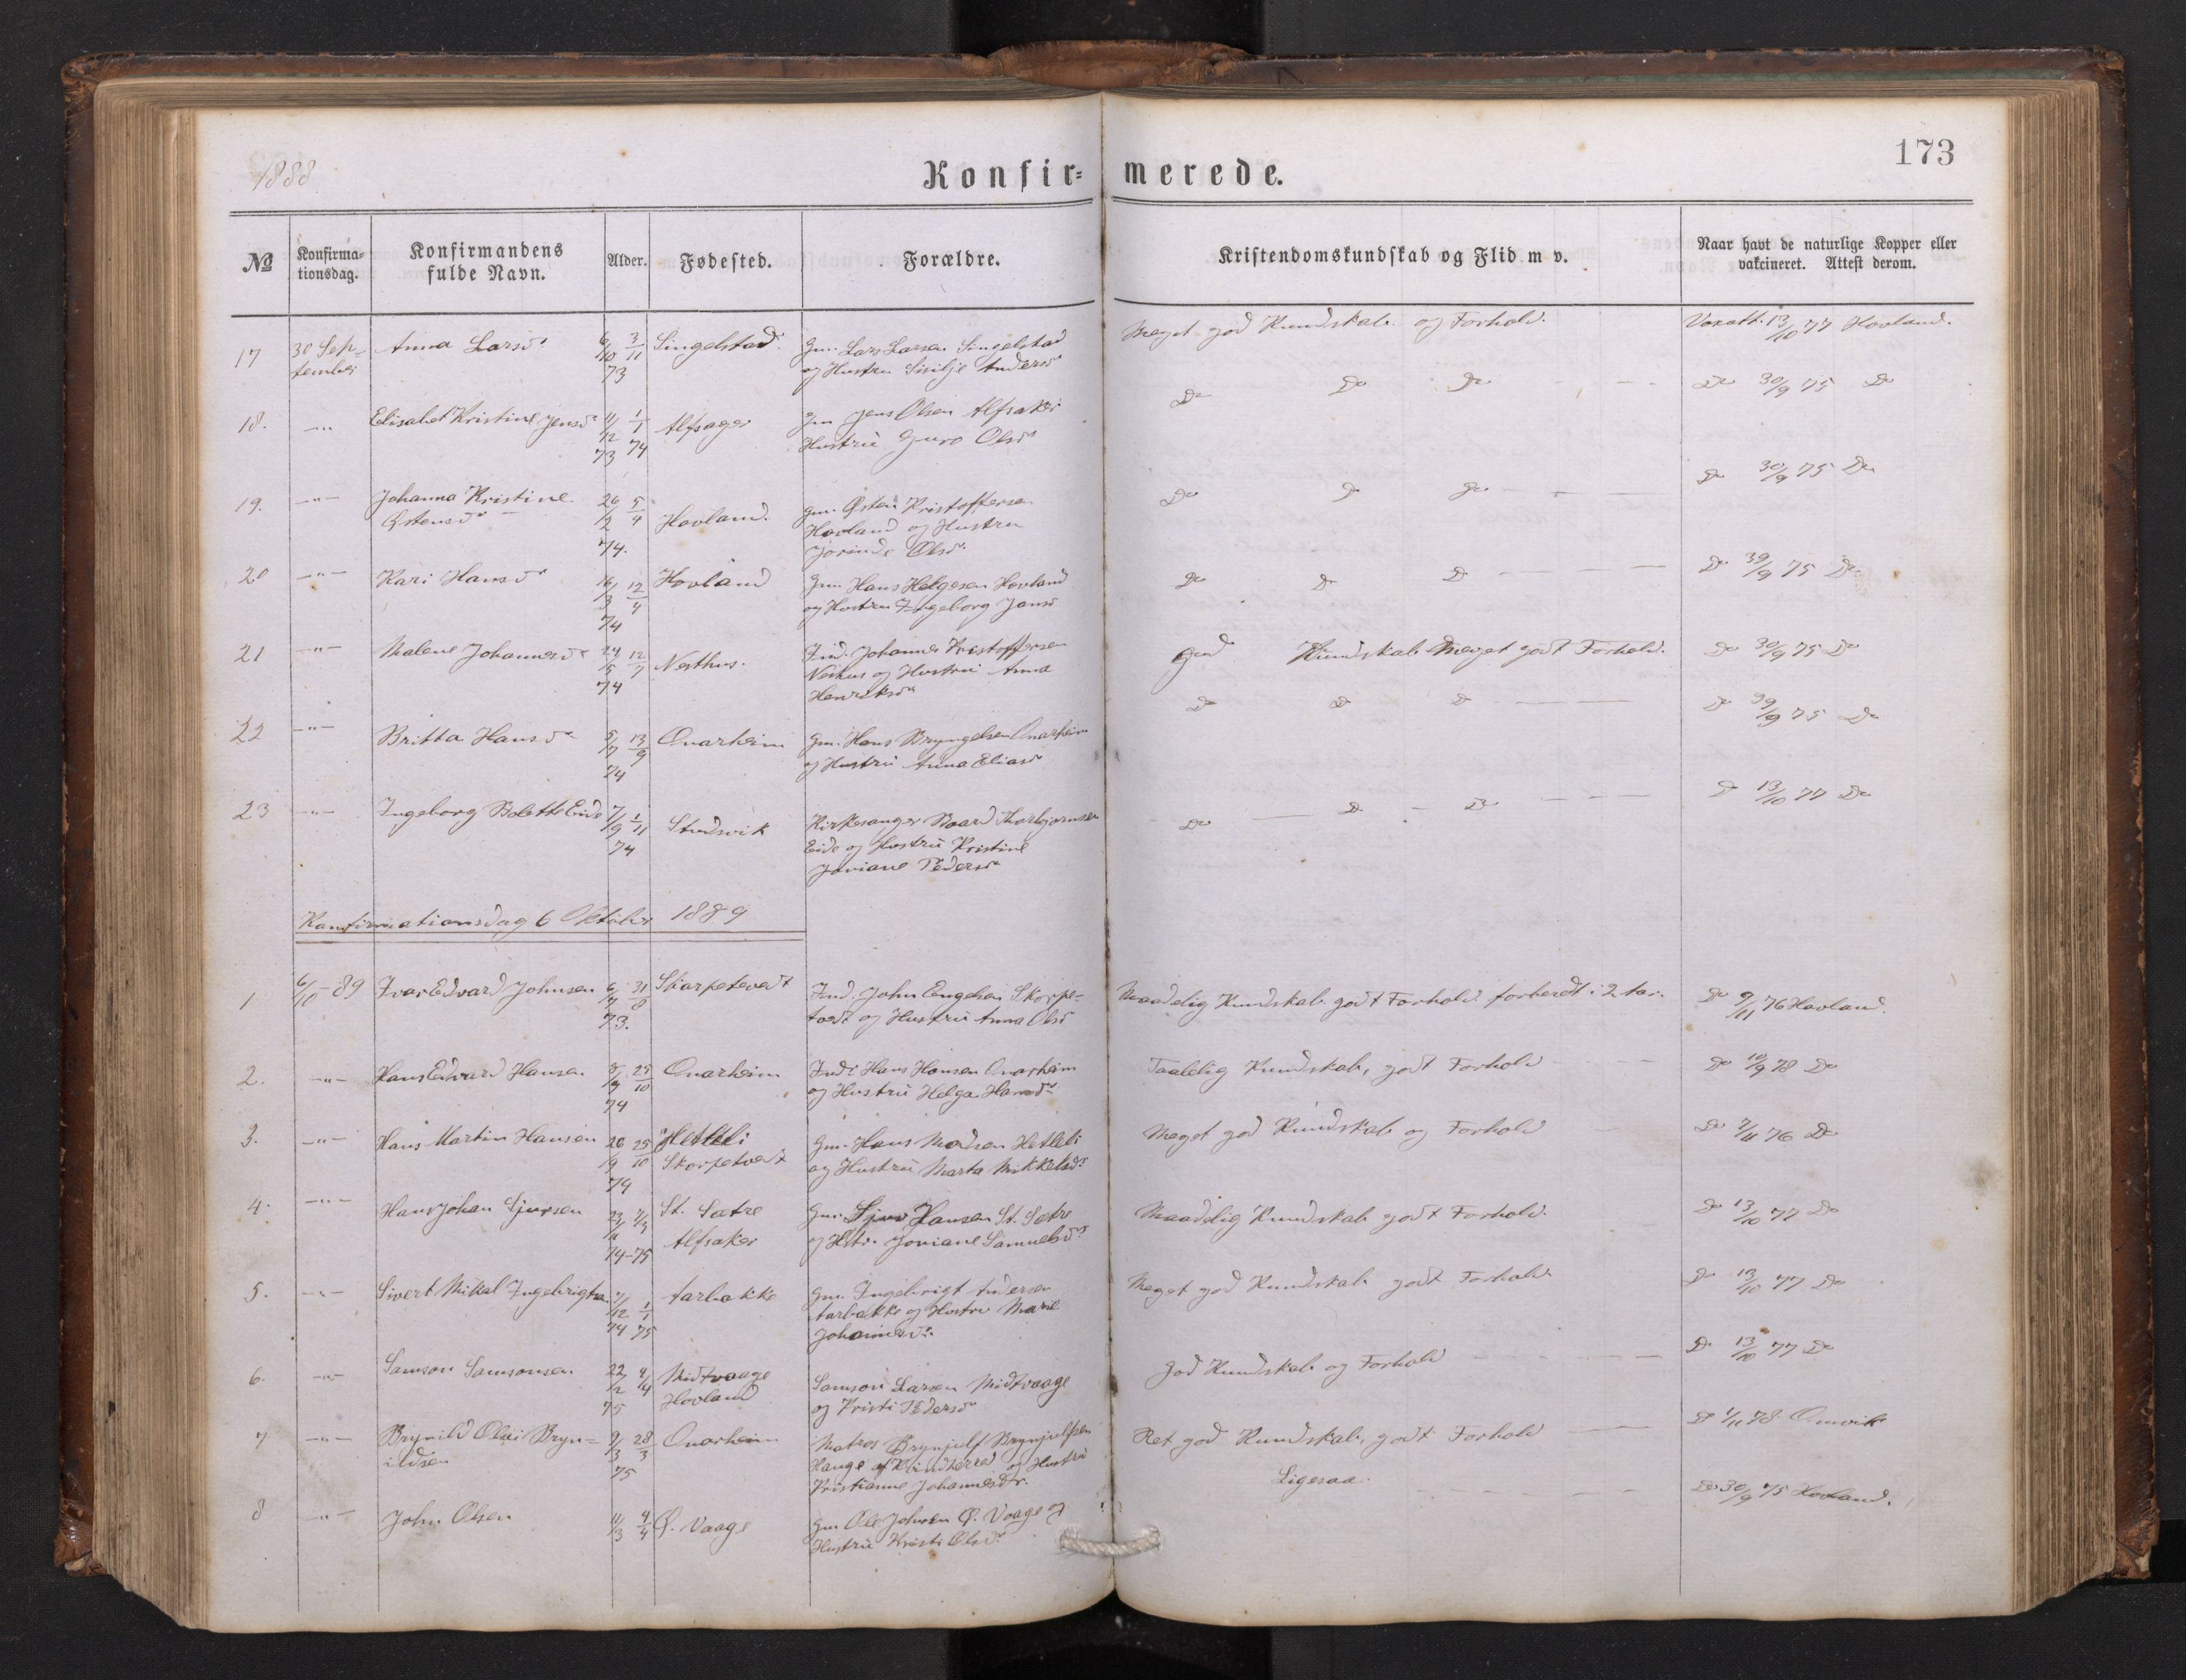 1888
Konfir- merede.
173
№ Konfirma-tionsdag. Konfirmandens fulde Navn. Alder. Fødested. Forældre. Kristendomskundskab og Flid m v. Naar havt de naturlige Kopper eller vakcineret. Attest derom.
17 30 Sep- Anna Larsdr 6/10 3/11 Singelstad. Gm. Lars Larsen Singelstad Meget god Kundskab og Forhold. Vaxatt. 13/10 77 Hovland.
tember 73 og Hustru Sisilje Andersdr
18. -"- Elisabet Kristine Jensdr 11/12 1/1 Alfsager Gm Jens Olsen Alfsaker Do Do Do Do 30/9 75 Do
73 74 Hustru Guro Olsdr
19. -"- Johanna Kristine 26/2 5/4 Hovland. Gm. Østen Kristoffersen Do Do Do Do 30/9 75 Do
Østensdr 74. Hovland og Hustru
Jorinde Olsdr.
20 -"- Kari Hansdr 16/3 12/4 Hovland Gm. Hans Helgesen Hovland Do Do Do Do 30/9 75 Do
74 og Hustru Ingeborg Jansd
21 -"- Malene Johannesdr 24/5 12/7 Nesthus. Ind. Johannes Kristoffersen god Kundskab Meget godt Forhold. Do 30/9 75 Do
74 Neshus og Hustru Anna
Henriksdr
22 -"- Britta Hansdr 5/7 13/9 Onarheim Gm. Hans Bryngelsen Onarheim Do Do Do Do 30/9 75 Do
74 og Hustru Anna Eliasdr
23 -"- Ingeborg Bolette Eide 7/9 1/11 Studsvik Kirkesanger Baard Thorbjørnsen Do Do Do Do 13/10 77 Do
74 Eide og Hustru Kristine
Joviane Pedersdr
Konfirmationsdag 6 Oktober 1889
1 6/10-89 Ivar Edvard Johnsen 6/7 31/8 Skarpetvedt Ind. John Engelsen Skorpe- Maadelig Kundskab godt Forhold forberedt i 2 Aar. Do 9/11 76 Hovland.
73. tvedt og Hustru Anna Olsd
2. -"- Hans Edvard Hansen 5/9 25/10 Onarheim Indr Hans Hansen Onarheim Taalelig Kundskab, godt Forhold Do 10/9 78 Do
74 og Hustru Helga Hansdr
3. -"- Hans Martin Hansen 20/9 25/10 Hetleli Gm. Hans Madsen Hetleli Meget god Kundskab og Forhold Do 7/11 76 Do
74 Skorpetvedt og Hustru Marta Mikkelsdr
4. -"- Hans Johan Sjursen 23/11 7/3 St. Sætre Gm. Sjur Hansen St. Sætre Maadelig Kundskab godt Forhold. Do 13/10 77 Do
74-75 Alfsaker og Hstr. Joviane Samuelsdr
5. -"- Sivert Mikal Ingebrigtsen 7/12 1/1 Aarbakke Gm. Ingebrigt Andersen Meget god Kundskab godt Forhold. Do 13/10 77 Do
74 75 Aarbakke og Hustru Marie
Johannesdr.
6. -"- Samson Samsonsen 22/2 4/4 Midtvaage Samson Larsen Midtvaage God Kundskab og Forhold Do 13/10 77 Do
75 Hovland og Kristi Pedersdr
7 -"- Brynild Olai Bryn- 9/3 28/3 Onarheim Matros Brynjulf Brynjulfsen Ret god Kundskab, godt Forhold Do 1/11 78 Omvik
ildsen 75 Hauge af Kvindherred og Hustru
Kristianne Johannesdr.
8 -"- John Olsen 11/3 4/4 Ø. Vaage Gm Ole Johnsen Ø. Vaage og Ligesaa. Do 30/9 75 Hovland.
Hustru Kristi Olsdr